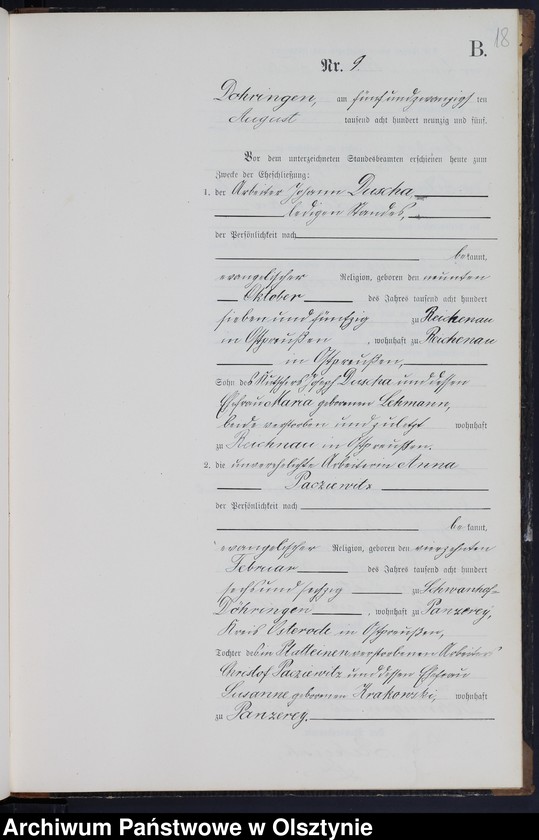 18
B.
Nr. 9.
Döhringen, am fünfundzwanzigsten
August tausend acht hundert neunzig und fünf.
Vor dem unterzeichneten Standesbeamten erschienen heute zum
Zwecke der Eheschließung:
1. der Arbeiter Johann Duscha,
ledigen Standes,
der Persönlichkeit nach
bekannt,
evangelischer Religion, geboren den neunten
Oktober des Jahres tausend acht hundert
sieben und fünfzig zu Reichenau
in Ostpreußen, wohnhaft zu Reichenau
in Ostpreußen,
Sohn des Joseph Duscha und dessen
Ehefrau Maria geborenen Lehmann,
beide verstorben und zuletzt wohnhaft
zu Reichnau in Ostpreußen.
2. die unverehelichte Arbeiterin Anna
Pacziewitz
der Persönlichkeit nach
bekannt,
evangelischer Religion, geboren den vierzehnten
Februar des Jahres tausend acht hundert
sechs und sechzig zu Schwanhof-
Döhringen, wohnhaft zu Panzerey,
Kreis Osterode in Ostpreußen,
Tochter des in Platteinen verstorbenen Arbeiters
Christof Pacziewitz und dessen Ehefrau
Susanne geborenen Krakowski, wohnhaft
zu Panzerey.
Archiwum Państwowe w Olsztynie